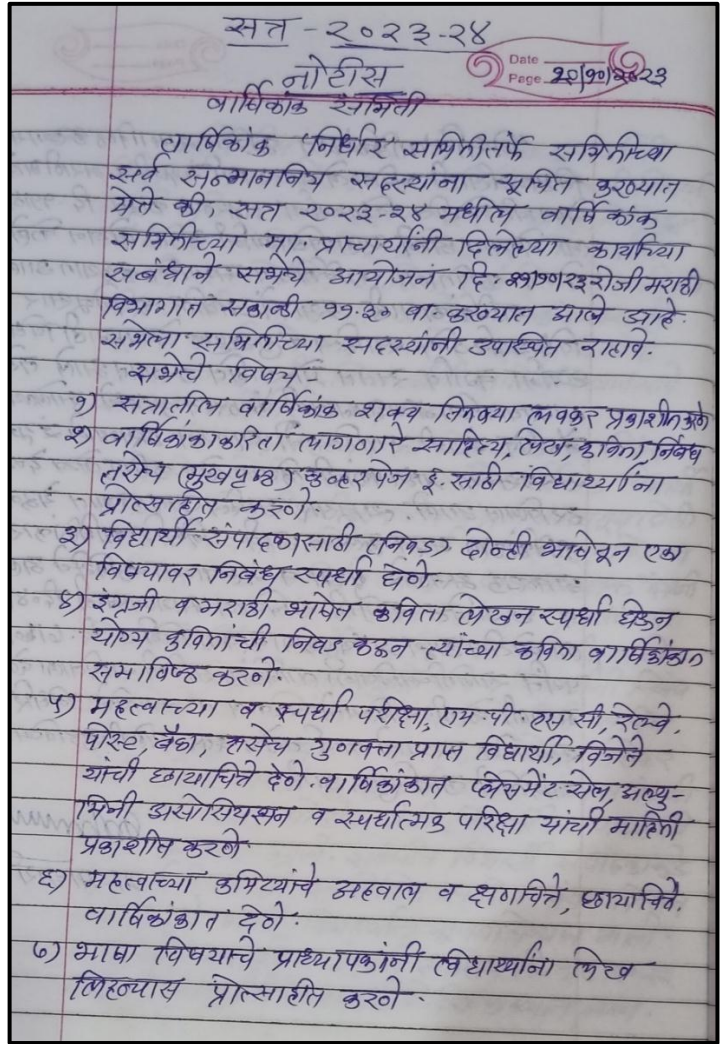 सत्र - २०२३-२४
Date
Page २०/१०/२०२३
नोटीस
वार्षिकांक समिती
वार्षिकांक निर्धार समितीतर्फे समितीच्या
सर्व सन्माननिय सदस्यांना सूचित करण्यात
येते की, सत्र २०२३-२४ मधील वार्षिकांक
समितीच्या मा. प्राचार्यांनी दिलेल्या कार्याच्या
संबंधाने सभेचे आयोजन दि. २१/१०/२३ रोजी मराठी
विभागात सकाळी ११.३० वा. करण्यात आले आहे.
सभेला समितीच्या सदस्यांनी उपस्थित राहावे.
सभेचे विषय -
१) सत्रातील वार्षिकांक शक्य तितक्या लवकर प्रकाशीत करणे
२) वार्षिकांकाकरिता लागणारे साहित्य, लेख, कविता, निबंध
तसेच (मुखपृष्ठ) कव्हर पेज इ. साठी विद्यार्थ्यांना
प्रोत्साहीत करणे.
३) विद्यार्थी संपादकासाठी (निवड) दोन्ही भाषेतून एका
विषयावर निबंध स्पर्धा घेणे.
४) इंग्रजी व मराठी भाषेत कविता लेखन स्पर्धा घेऊन
योग्य कवितांची निवड करून त्यांच्या कविता वार्षिकांकात
समाविष्ठ करणे.
५) महत्वाच्या व स्पर्धा परीक्षा, एम.पी.एस.सी, रेल्वे,
पोस्ट, बँका, तसेच गुणवत्ता प्राप्त विद्यार्थी, विजेते
यांची छायाचित्रे देणे. वार्षिकांकात प्लेसमेंट सेल, अल्यु-
मिनी असोसियशन व स्पर्धात्मक परिक्षा यांची माहिती
प्रकाशीत करणे
६) महत्वाच्या कमिट्यांचे अहवाल व क्षणचित्रे, छायाचित्रे.
वार्षिकांकात देणे.
७) भाषा विषयाचे प्राध्यापकांनी विद्यार्थ्यांना लेख
लिहण्यास प्रोत्साहीत करणे.